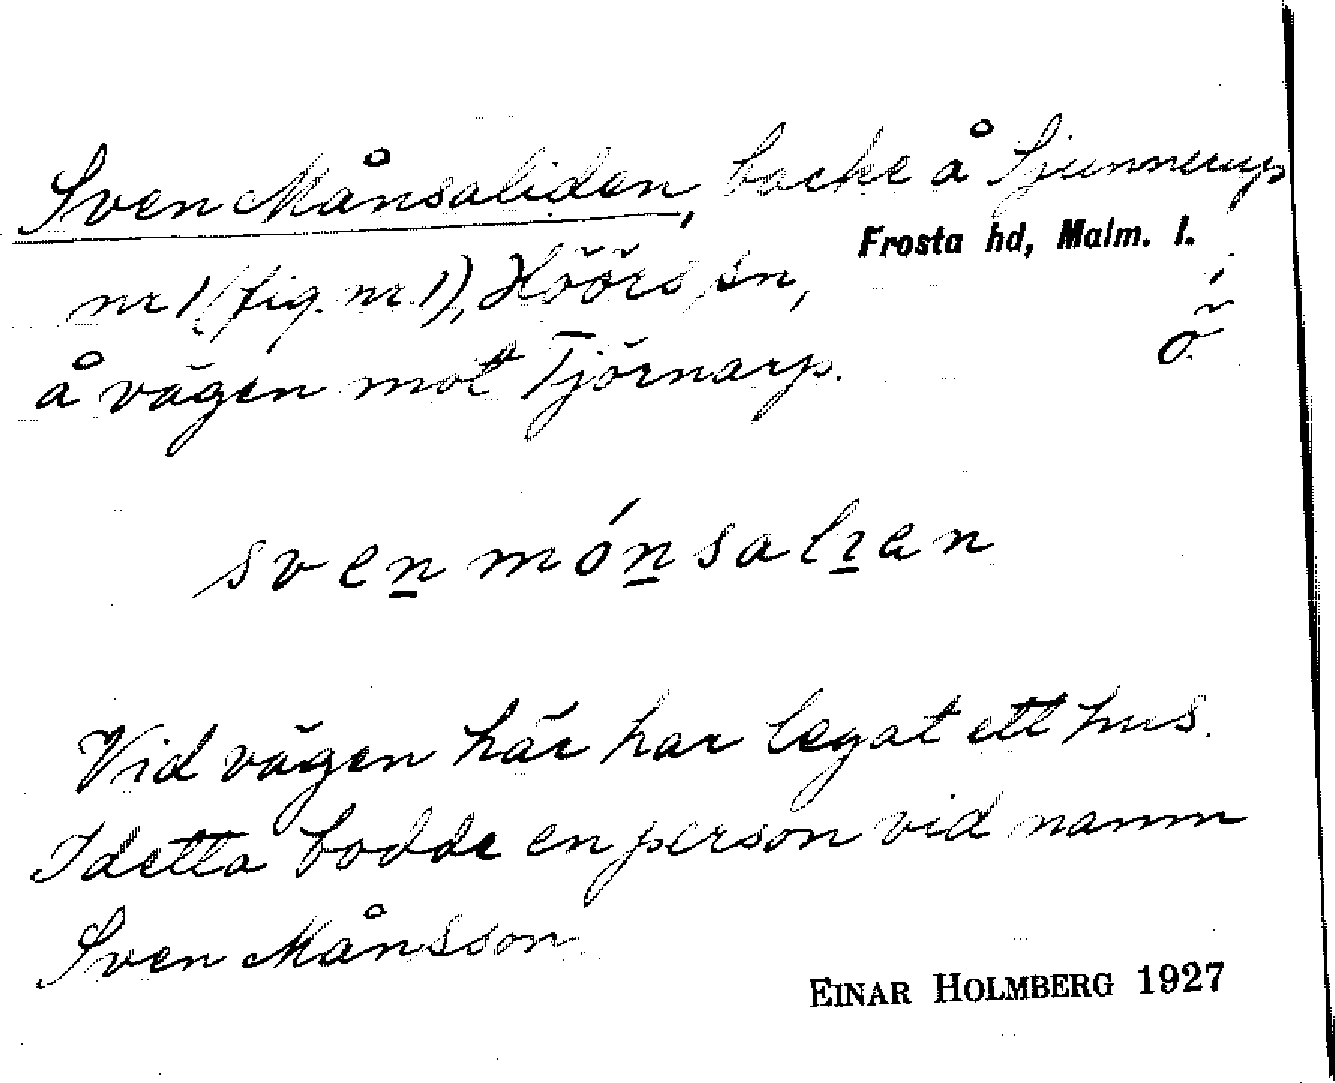 Sven Månsaliden, backe å Sjunnerup
Frosta hd, Malm. l.
nr 1 (fig. nr 1), Höörs sn,
å vägen mot Tjörnarp.
sven mónsalien
Vid vägen här har legat ett hus.
I detta bodde en person vid namn
Sven Månsson
EINAR HOLMBERG 1927